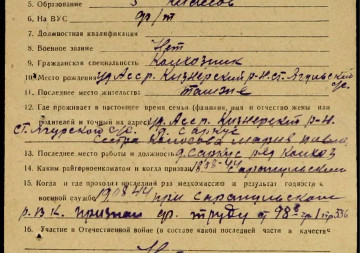 5. Образование 3 класса
6. На ВУС ф/т
7. Должностная квалификация
8. Военное звание Нет
9. Гражданская специальность Колхозник
10. Место рождения Ур. Асср. Кизнерский р-н ст. Ягульский с/с.
11. Последнее место жительства Там же
12. Где проживает в настоящее время семья (фамилия, имя и отчество жены или
родителей и точный их адрес) Ур. Асср. Кизнерский р-н
ст. с/с. д. Саркуз
сестра Мария
13. Последнее место работы и должность д. Саркуз колхоз
14. Каким райгорвоенкоматом и когда призван Сарапульским
15. Когда и где проходил последний раз медкомиссию и результат годности к
военной службе 1908 44 при Сарапульском
р.В.К. признан труду от 98г. гр I пр. 336
16. Участие в Отечественной войне (в составе какой последней части и в качестве